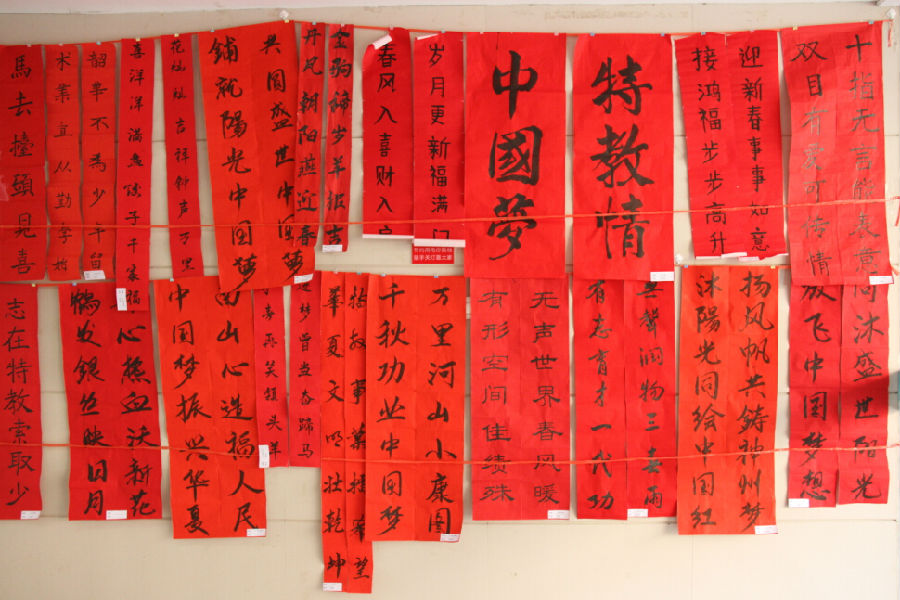 十指无言能表意
双目有爱可传情
迎新春事事如意
接鸿福步步高升
特教情
中國夢
岁月更新福满门
春风入喜财入户
辞岁羊报吉
丹凤朝阳燕近春
共圆盛世中国梦
铺就陽光中国梦
花灿灿吉祥钟声万里
喜洋洋满意饺子千家福
韶華不為少年留
术業宜从勤学始
馬去擡頭見喜
同沐盛世阳光
放飞中国梦想
扬风帆共铸神州梦
沐陽光同绘中国红
無聲润物三春雨
有志育才一代功
无声世界春风暖
有形空间佳绩殊
万里河山小康图
千秋功业中国梦
特教事業掛希望
華夏文明壮乾坤
梦曾当奋蹄马
再笑领头羊
山心造福人民
中国梦振兴华夏
心血沃新花
鹤发银丝映日月
志在特教索取少